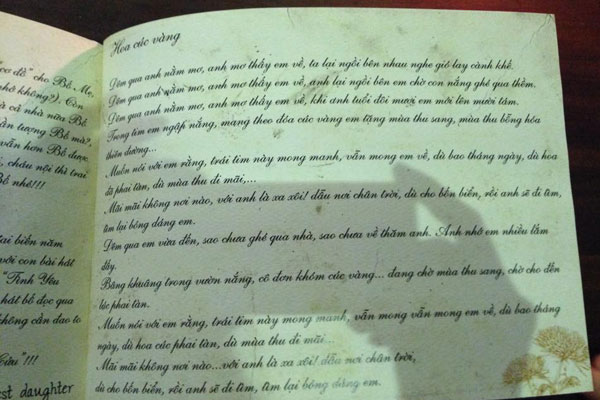 cơ đồ" cho Bố Mẹ,
nhớ không?). Còn
à cả nhà nữa Bố
ấn tượng Bố mà?,
vẫn hơn Bố được.
, cháu nội thì trai
Bố nhé!!!
tai biến năm
với con bài hát
"Tình Yêu
hát bố đọc qua
không cần dao to
Cừu"!!!
st daughter
Hoa cúc vàng
Đêm qua anh nằm mơ, anh mơ thấy em về, ta lại ngồi bên nhau nghe gió lay cành khế.
Đêm qua anh nằm mơ, anh mơ thấy em về, anh lại ngồi bên em chờ con nắng ghé qua thềm.
Đêm qua anh nằm mơ, anh mơ thấy em về, khi anh tuổi đôi mươi em mới lên mười tám.
Trong tim em ngập nắng, mang theo đóa cúc vàng em tặng mùa thu sang, mùa thu bỗng hóa
thiên đường...
Muốn nói với em rằng, trái tim này mong manh, vẫn mong em về, dù bao tháng ngày, dù hoa
đã phai tàn, dù mùa thu đi mãi,...
Mãi mãi không nơi nào, với anh là xa xôi! dẫu nơi chân trời, dù cho bốn biển, rồi anh sẽ đi tìm,
tìm lại bóng dáng em.
Đêm qua em vừa đến, sao chưa ghé qua nhà, sao chưa về thăm anh. Anh nhớ em nhiều lắm
đấy.
Bâng khuâng trong vườn nắng, cô đơn khóm cúc vàng... đang chờ mùa thu sang, chờ cho đến
lúc phai tàn.
Muốn nói với em rằng, trái tim này mong manh, vẫn mong vẫn mong em về, dù bao tháng
ngày, dù hoa cúc phai tàn, dù mùa thu đi mãi...
Mãi mãi không nơi nào...với anh là xa xôi! dẫu nơi chân trời,
dù cho bốn biển, rồi anh sẽ đi tìm, tìm lại bóng dáng em.